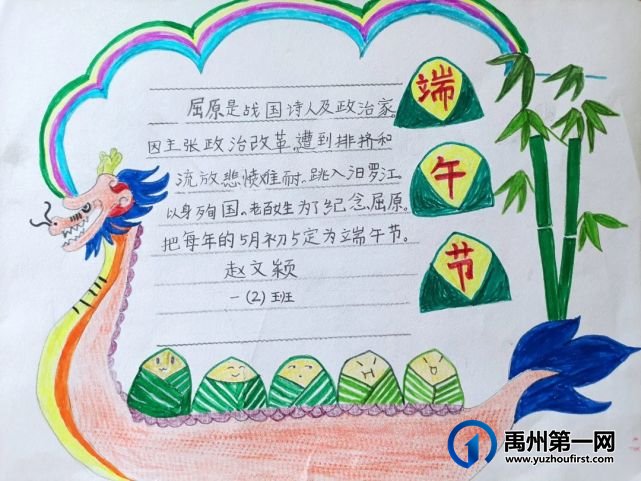 端午节
屈原是战国诗人及政治家。
因主张政治改革,遭到排挤和
流放悲愤难耐、跳入汨罗江,
以身殉国。老百姓为了纪念屈原。
把每年的5月初5定为端午节。
赵文颖
一(2)班
禹州第一网
www.yuzhoufirst.com